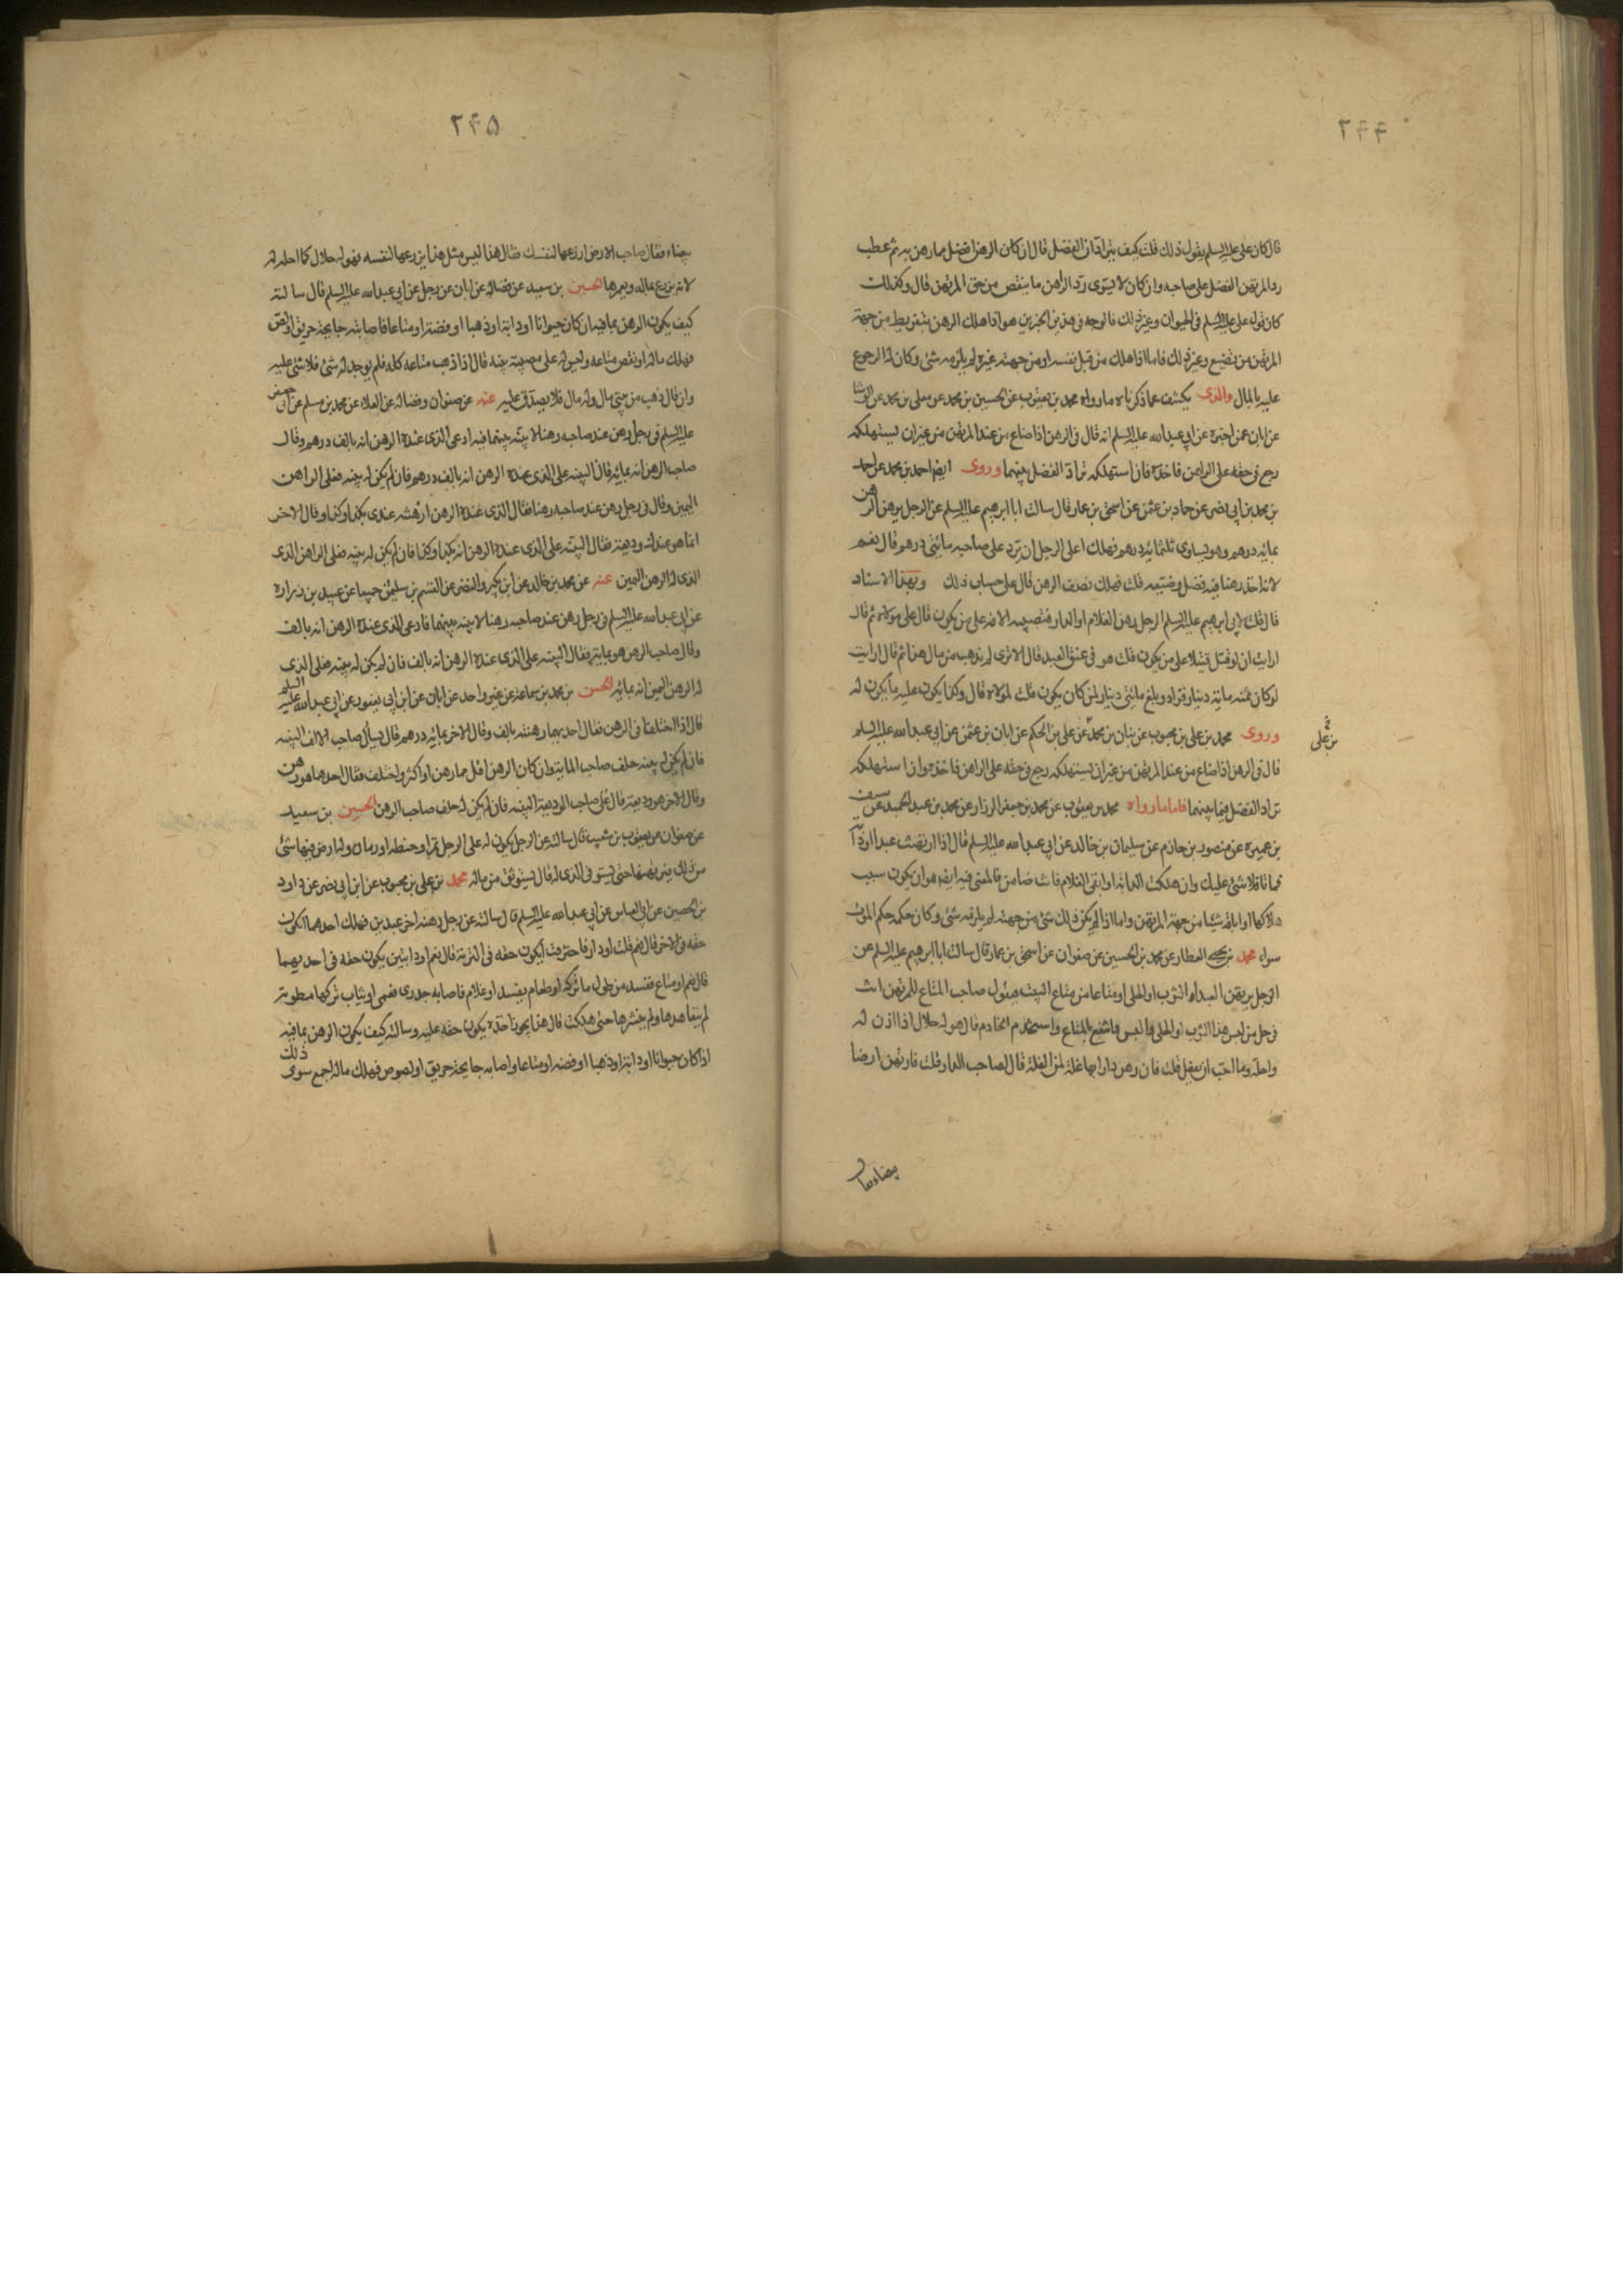 ۲۴۴
قال كان على عليه السلم يقول ذلك قلت كيف يترادان الفضل قال ان كان الرهن افضل مما رهن به ثم عطب
رد المرتهن الفضل على صاحبه وان كان لا يسوى رد الراهن ما ينقص من حق المرتهن قال وكذلك
كان قول على عليه السلم فى الحيوان وغير ذلك فالوجه فى هذين الخبرين هو اذا هلك الرهن بتفريط من جهة
المرتهن من تضييع وغير ذلك فاما اذا هلك من قبل نفسه او من جهة غيره لم يلزمه شئ وكان له الرجوع
عليه بالمال والذى يكشف عما ذكرناه ما رواه محمد بن يعقوب عن الحسين بن محمد عن معلى بن محمد عن الوشا
عن ابان عمن اخبره عن ابى عبد الله عليه السلم انه قال فى الرهن اذا ضاع من عند المرتهن من غير ان يستهلكه
رجع فى حقه على الراهن فاخذه فان استهلكه تراد الفضل بينهما وروى ايضا احمد بن محمد عن احمد
بن محمد بن ابى نصر عن حماد بن عثمن عن اسحق بن عمار قال سالت ابا ابرهيم عليه السلم عن الرجل يرهن الرهن
بمائة درهم وهو يساوى ثلثمائة درهم فهلك اعلى الرجل ان يرد على صاحبه مائتى درهم قال نعم
لانه اخذ رهنا فيه فضل وضيعه قلت فهلك نصف الرهن قال على حساب ذلك وبهذا الاسناد
قال قلت لابى ابرهيم عليه السلم الرجل يرهن الغلام او الدار فتصيبه الافه على من يكون قال على مولاه ثم قال
ارايت ان لو قتل قتيلا على من يكون قلت هو فى عنق العبد قال الا ترى لم يذهب من مال هذا ثم قال ارايت
لو كان ثمنه مائة دينار فزاد وبلغ مائتى دينار لمن كان يكون قلت لمولاه قال وكذا يكون عليه ما يكون له
وروى محمد بن على بن محبوب عن بنان بن محمد عن على بن الحكم عن ابان بن عثمن عن ابى عبد الله عليه السلم
بن على
قال فى الرهن اذا ضاع من عند المرتهن من غير ان يستهلكه رجع فى حقه على الراهن فاخذه وان استهلكه
تراد الفضل فيما بينهما فاما ما رواه محمد بن يعقوب عن محمد بن جعفر الرزاز عن محمد بن عبد الحميد عن سيف
بن عميرة عن منصور بن حازم عن سليمان بن خالد عن ابى عبد الله عليه السلم قال اذا ارتهنت عبدا او دابة
فماتا فلا شئ عليك وان هلكت الدابة او ابق الغلام فانت ضامن فالمعنى فيه ايضا هو ان يكون سبب
هلاكها او اباقه شيئا من جهة المرتهن واما اذا لم يكن ذلك شئ من جهته لم يلزمه شئ وكان حكمه حكم الموت
سواء محمد بن يحيى العطار عن محمد بن الحسين عن صفوان عن اسحق بن عمار قال سالت ابا ابرهيم عليه السلم عن
الرجل يرتهن العبد او الثوب او الحلى او متاعا من متاع البيت فيقول صاحب المتاع للمرتهن انت
فى حل من لبس هذا الثوب او الحلى فالبس وانتفع بالمتاع واستخدم الخادم قال هو له حلال اذا اذن له
واحله وما احب ان يفعل قلت فان رهن دارا لها غلة لمن الغلة قال لصاحب الدار قلت فارتهن ارضا
بيضاء فقال
۲۴۵
بيضاء فقال صاحب الارض ازرعها لنفسك فقال هذا ليس مثل هذا يزرعها لنفسه فهو له حلال كما احله له
لانه يزرع بماله ويعمرها الحسين بن سعيد عن فضاله عن ابان عن رجل عن ابى عبد الله عليه السلم قال سالته
كيف يكون الرهن بما فيه ان كان حيوانا او دابة او ذهبا او فضة او متاعا فاصابته جايحة حريق او لص
فهلك ماله او نقص متاعه وليس له على مصيبته بينه قال اذا ذهب متاعه كله فلم يوجد له شئ فلا شئ عليه
وان قال ذهب من بيتى مال وله مال فلا يصدق عليه عنه عن صفوان وفضاله عن العلاء عن محمد بن مسلم عن ابى جعفر
عليه السلم فى رجل رهن عند صاحبه رهنا لا بينه بينهما فيه ادعى الذى عنده الرهن انه بالف درهم وقال
صاحب الرهن انه بمائه قال البينه على الذى عنده الرهن انه بالف درهم فان لم يكن له بينه فعلى الراهن
اليمين وقال فى رجل رهن عند صاحبه رهنا فقال الذى عنده الرهن ارتهنته عندى بكذا وكذا وقال الاخر
انما هو عندك وديعة فقال البينه على الذى عنده الرهن انه بكذا وكذا فان لم يكن له بينه فعلى الراهن الذى
الذى له الرهن اليمين عنه عن محمد بن خالد عن ابن بكير والنضر عن القسم بن سليمن جميعا عن عبيد بن زراره
عن ابى عبد الله عليه السلم فى رجل رهن عند صاحبه رهنا لا بينه بينهما فادعى الذى عنده الرهن انه بالف
وقال صاحب الرهن هو بمايه فقال البينه على الذى عنده الرهن انه بالف فان لم يكن له بينه فعلى الذى
له الرهن اليمين انه بمايه الحسن بن محمد بن سماعه عن غير واحد عن ابان عن ابن ابى يعفور عن ابى عبد الله عليه السلم
قال اذا اختلفا فى الرهن فقال احدهما رهنته بالف وقال الاخر بمائه درهم قال يسأل صاحب الالف البينه
فان لم يكن له بينه حلف صاحب المايه وان كان الرهن اقل مما رهن او اكثر واختلف فقال احدهما هو رهن
وقال الاخر هو وديعة قال على صاحب الوديعة البينه فان لم يكن له حلف صاحب الرهن الحسين بن سعيد
عن صفوان عن يعقوب بن شعيب قال سالته عن الرجل يكون له على الرجل تمر او حنطه او رمان وله ارض فيها شئ
من ذلك يرتهنها حتى يستوفى الذى له قال يستوثق من ماله محمد بن على بن محبوب عن ابن ابى نصر عن داود
بن الحصين عن ابى العباس عن ابى عبد الله عليه السلم قال سالته عن رجل رهنه اخر عبدين فهلك احدهما ايكون
حقه فى الاخر قال نعم قلت او دارا فاحترقت ايكون حقه فى التربة قال نعم او دابتين يكون حقه فى احديهما
قال نعم او متاع ففسد من طول ما تركه او طعام يفسد او غلام فاصابه جدرى فعمى او ثياب تركها مطويه
لم يتعاهدها ولم ينشرها حتى هلكت قال هذا يجوز اخذه يكون حقه عليه وسالته كيف يكون الرهن بما فيه
اذا كان حيوانا او دابة او ذهبا او فضه او متاعا واصابه جايحة حريق او لصوص فهلك ماله اجمع سوى ذلك